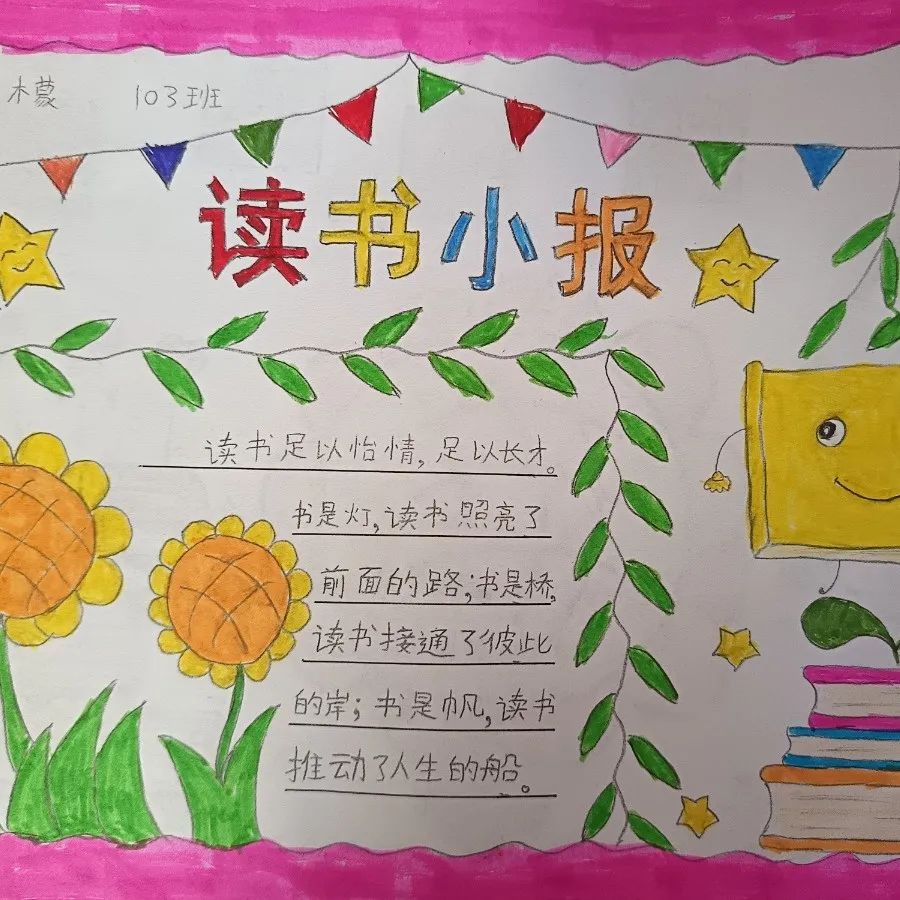 木蒙 103班
读书小报
读书足以怡情,足以长才。
书是灯,读书照亮了
前面的路;书是桥,
读书接通了彼此
的岸;书是帆,读书
推动了人生的船。